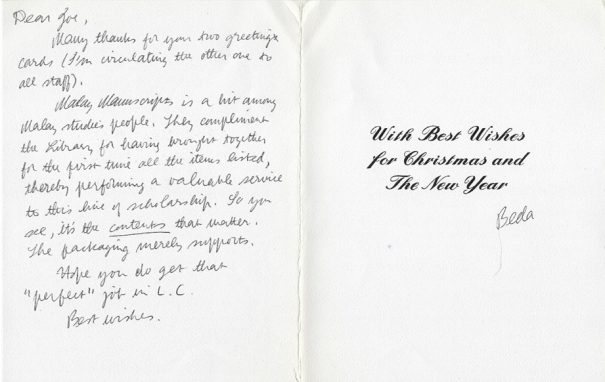 Dear Zoe,
Many thanks for your two greetings
cards (I'm circulating the other one to
all staff).
Malay Manuscripts is a hit among
Malay studies people. They compliment
the Library for having brought together
for the first time all the items listed,
thereby performing a valuable service
to this line of scholarship. So you
see, it's the contents that matter.
The packaging merely supports.
Hope you do get that
"perfect" job in L.C.
Best wishes.
With Best Wishes
for Christmas and
The New Year
Beda